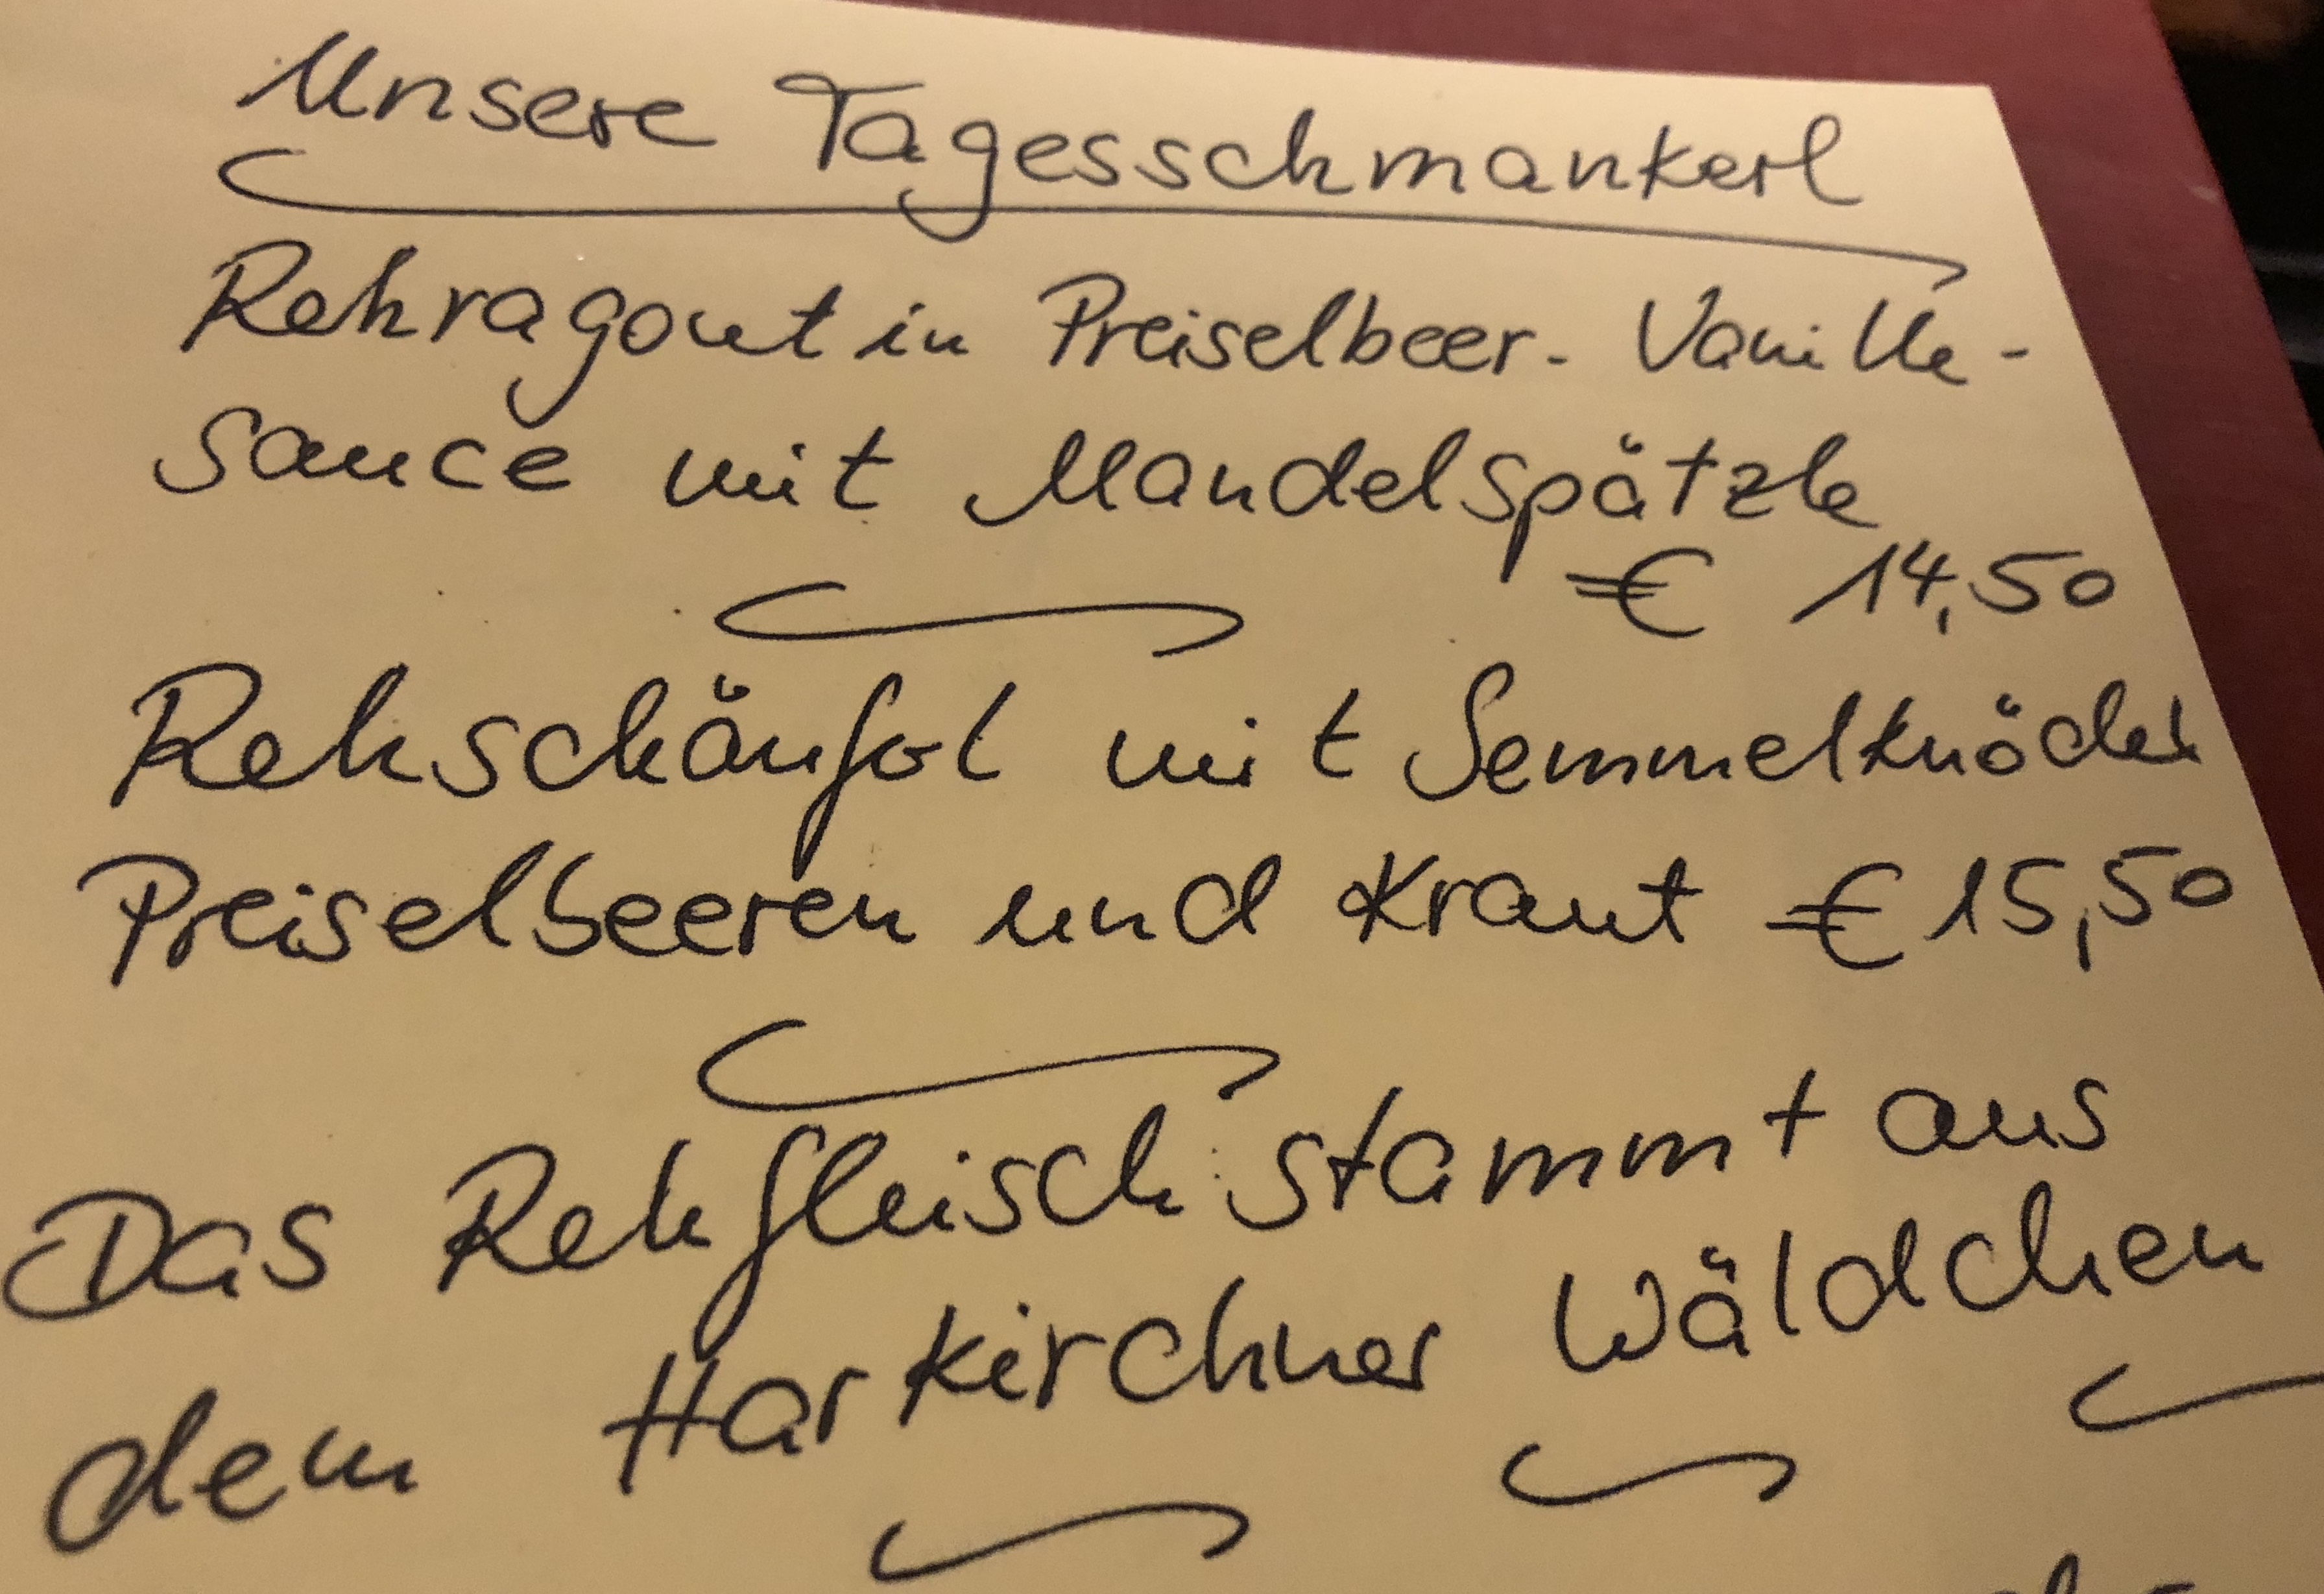 Unsere Tagesschmankerl
Rehragout in Preiselbeer-Vanille-
sauce mit Mandelspätzle
€ 14,50
Rehschäufel mit Semmelknödel
Preiselbeeren und Kraut € 15,50
Das Rehfleisch stammt aus
dem Harkirchner Wäldchen